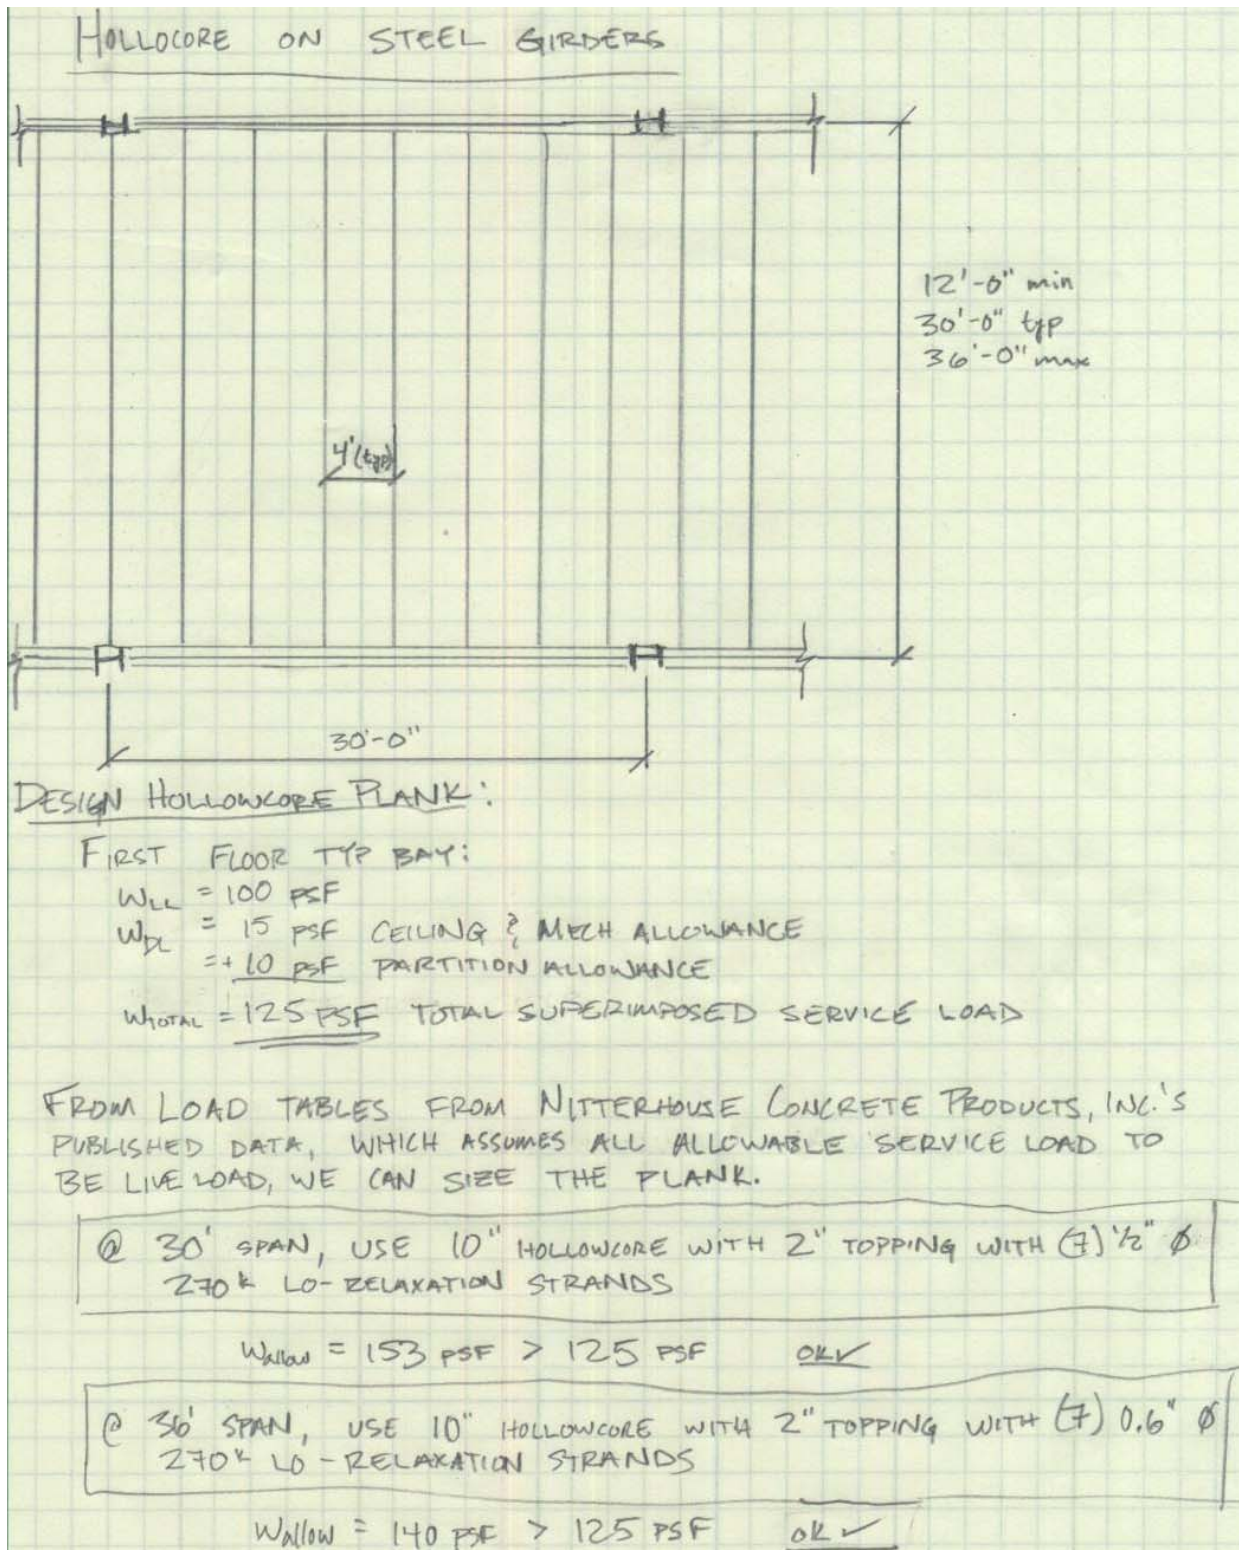 HOLLOCORE ON STEEL GIRDERS
12'-0" min
30'-0" typ
36'-0" max
4'(typ)
30'-0"
DESIGN HOLLOWCORE PLANK:
FIRST FLOOR TYP BAY:
WLL = 100 PSF
WDL = 15 PSF CEILING & MECH ALLOWANCE
=+ 10 PSF PARTITION ALLOWANCE
WTOTAL = 125 PSF TOTAL SUPERIMPOSED SERVICE LOAD
FROM LOAD TABLES FROM NITTERHOUSE CONCRETE PRODUCTS, INC.'S
PUBLISHED DATA, WHICH ASSUMES ALL ALLOWABLE SERVICE LOAD TO
BE LIVE LOAD, WE CAN SIZE THE PLANK.
@ 30' SPAN, USE 10" HOLLOWCORE WITH 2" TOPPING WITH (7) 1/2" Ø
270K LO-RELAXATION STRANDS
Wallow = 153 PSF > 125 PSF OK✓
@ 36' SPAN, USE 10" HOLLOWCORE WITH 2" TOPPING WITH (7) 0.6" Ø
270K LO-RELAXATION STRANDS
Wallow = 140 PSF > 125 PSF OK ✓